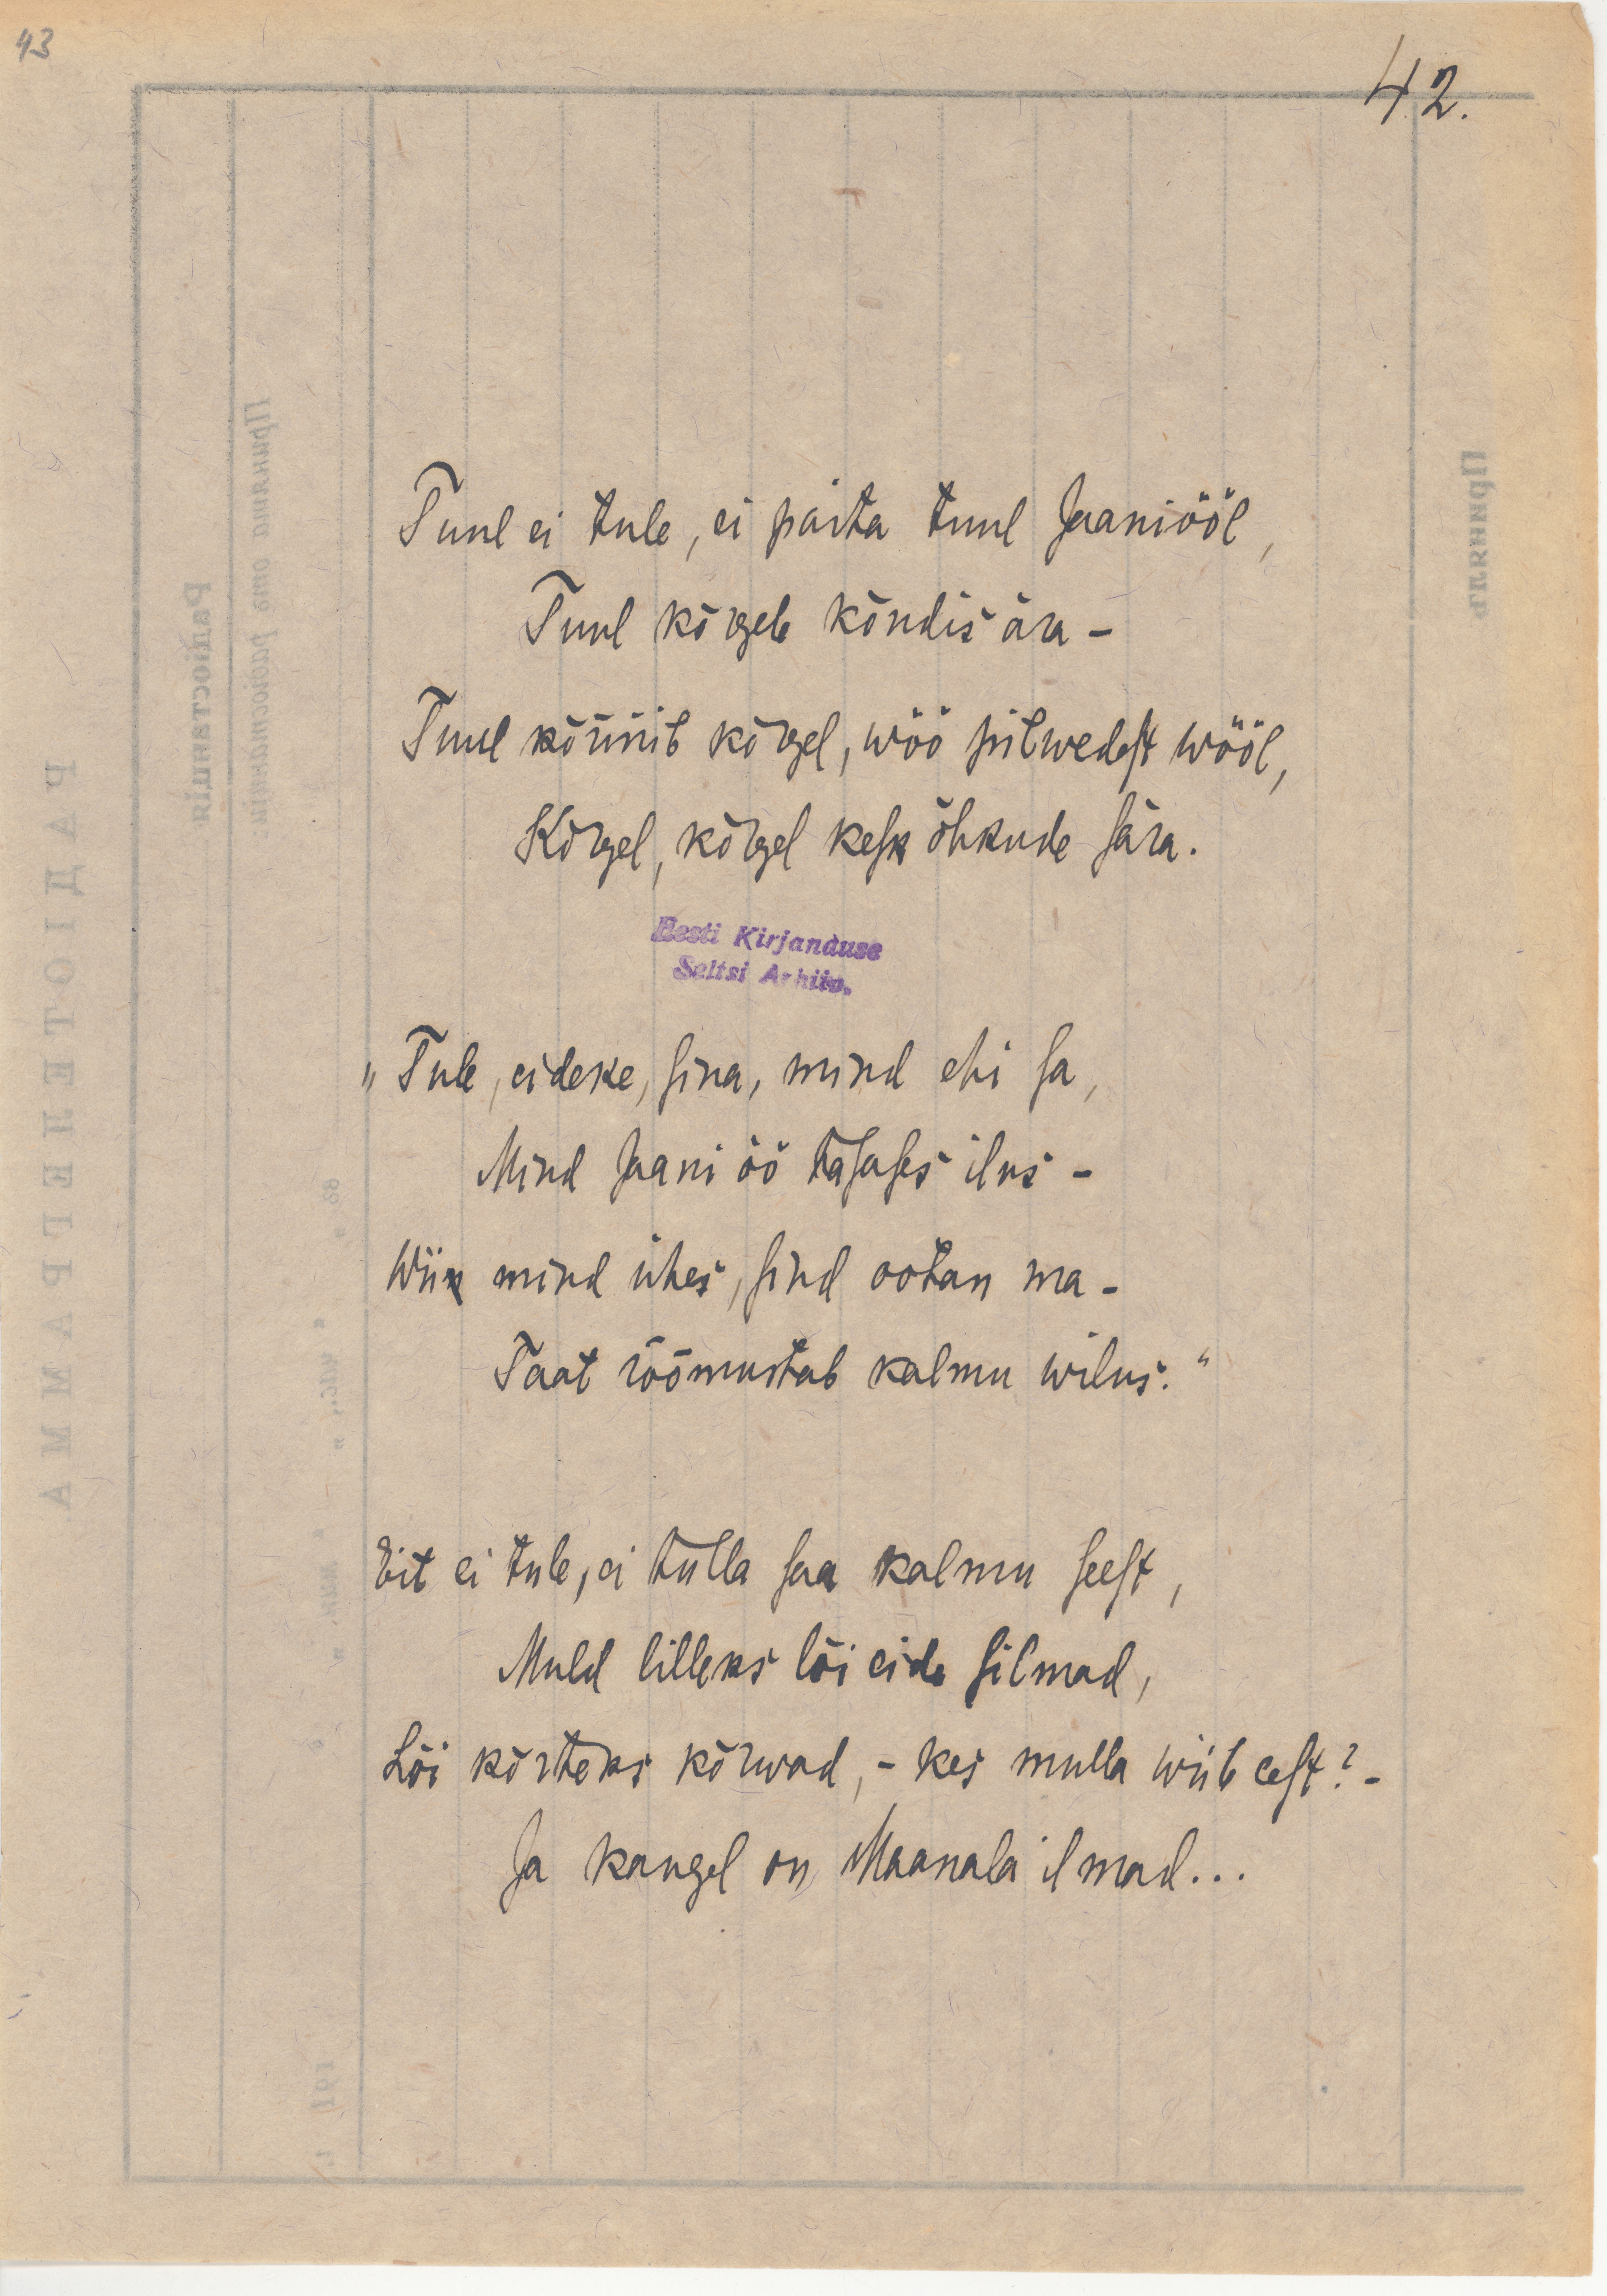 43
42.
Tuul ei tule, ei paita tuul Jaaniööl,
Tuul kõrgele kõndis ära –
Tuul kõnnib kõrgel, wöö pilwedest wööl,
Kõrgel, kõrgel kesk õhkude sära.
Eesti Kirjanduse
Seltsi Arhiiv.
„Tule, eideke, sina, mind ehi sa,
Mind Jaani öö tasases ilus –
Wii mind ühes, sind ootan ma –
Taat rõõmustab kalmu wilus.“
Eit ei tule, ei tulla saa kalmu seest,
Muld lilleks lõi eide silmad,
Lõi kõrteks kõrwad, – kes mulla wiib eest? –
Ja kaugel on Maanala ilmad...
РАДІОТЕЛЕГРАММА
Радіостанція
Принята отъ радіостанціи
Принялъ
191